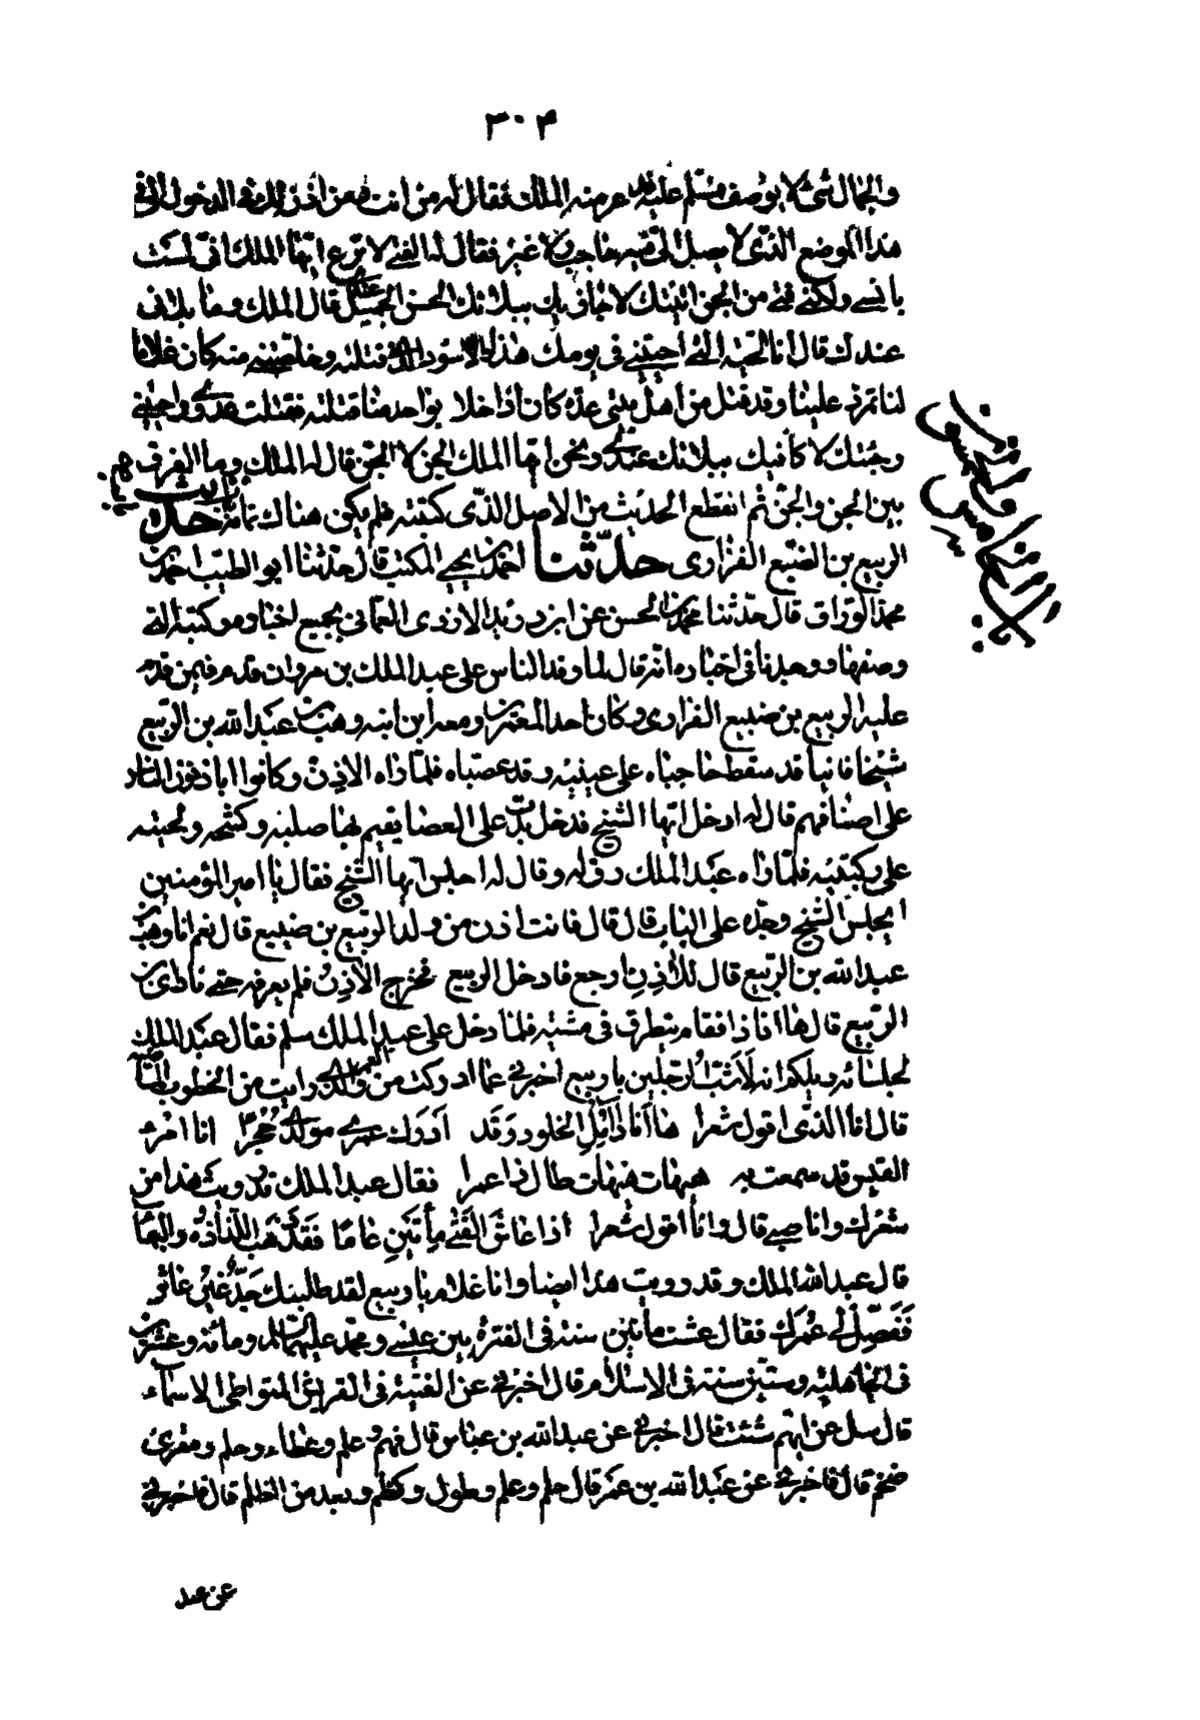 ٣٠٤
والجمال شئ لا يوصف فسلم عليه فذعر منه الملك فقال له من انت ومن اذن لك فى الدخول الىّ فى
هذا الموضع الذى لا يصل الىّ فيه حاجب ولا غيره فقال له الفتى لا ترع ايّها الملك انّى لست
بانسى ولكنى فتى من الجن اتيتك لاجازيك ببلائك الحسن الجميل عندى قال الملك وما بلائى
عندك قال انا الحيّة التى احييتنى فى يومك هذا والاسود الذى قتلته وخلصتنى منه كان غلاما
لنا تمرّد علينا وقد قتل من اهل بيتى عدّة كان اذا خلا بواحد منا قتله فقتلت عدوّى واحييتنى
وجئتك لاكافيك ببلائك عندى ونحن ايّها الملك الجن لا الجنّ قال له الملك وما الفرق
بين الجن والجنّ ثم انقطع الحديث من الاصل الذى كتبته فلم يكن هناك تمامه
باب الخامس والخمسون
حديث
الربيع بن الضبع الفزارى حدّثنا احمد بن يحيى المكتب قال حدّثنا ابو الطيّب احمد بن
محمد الورّاق قال حدّثنا محمد بن الحسن بن دريد الازدى العمّانى بجميع اخباره وكتبه التى
وصنفها ووجدنا فى اخباره انّه قال لما وفد الناس على عبد الملك بن مروان قدم فيمن قدم
عليه الربيع بن ضبيع الفزارى وكان احد المعمّرين ومعه ابن ابنه وهب بن عبد الله بن الربيع
شيخا فانيا قد سقط حاجباه على عينيه وقد عصبهما فلمّا راه الاذن وكانوا ياذنون للناس
على اسنانهم قال له ادخل ايّها الشيخ فدخل يدبّ على العصا يقيم بها صلبه وكشحه ولحيته
على ركبتيه فلمّا راه عبد الملك رقّ له وقال له اجلس ايّها الشيخ فقال يا امير المؤمنين
ايجلس الشيخ وجدّه على الباب قال فانت اذن من ولد الربيع بن ضبيع قال نعم انا وهب بن
عبد الله بن الربيع قال للاذن ارجع فادخل الربيع فخرج الاذن فلم يعرفه حتى نادى اين
الربيع قال ها انا ذا فقام يتطرق فى مشيته فلمّا دخل على عبد الملك سلم فقال عبد الملك
لجلسائه ويلكم انه لاشبّ الرجلين يا ربيع اخبرنى عمّا ادركت من العمر ورايت من الخطوب الماضية
قال انا الذى اقول شعرا ها انا ذا امل الخلود وقد ادرك عمرى مولدى حجرا انا امرء
القيس قد سمعت به هيهات هيهات طال ذا عمرا فقال عبد الملك قد رويت هذا من
شعرك وانا صبى قال وانا اقول شعرا اذا عاش الفتى مأتين عاما فقد ذهب اللذاذة والبهاء
قال عبد الملك وقد رويت هذا ايضا وانا غلام يا ربيع لقد طلبك جدّ غير عاثر
ففصّل لى عمرك فقال عشت مأتين سنة فى الفترة بين عيسى ومحمّد عليهما السلام ومائة وعشرين
فى الجاهلية وستّين سنة فى الاسلام قال اخبرنى عن الفتية فى القريش المتواطى الاسماء
قال سل عن ايّهم شئت قال اخبرنى عن عبد الله بن عباس قال فهم وعلم وعطاء وحلم ومقرى
ضخم قال فاخبرنى عن عبد الله بن عمر قال حلم وعلم وطول وكظم وبعد من الظلم قال فاخبرنى
عن عبد